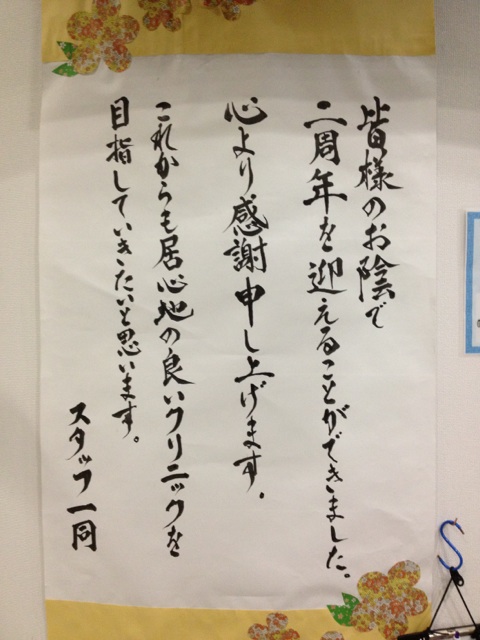 皆様のお陰で
二周年を迎えることができました。
心より感謝申し上げます。
これからも居心地の良いクリニックを
目指していきたいと思います。
スタッフ一同